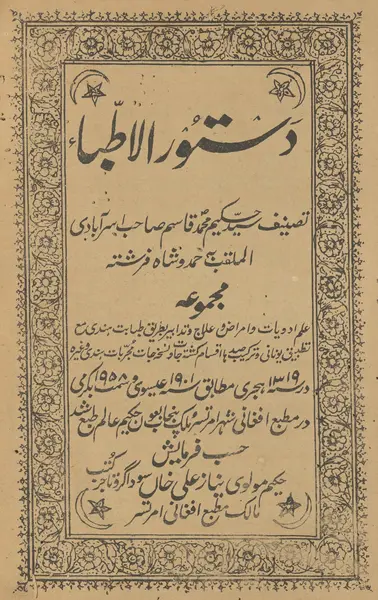 دستور الاطباء
تصنیف سید حکیم محمد قاسم صاحب استرآبادی
الملقب بہ ہندوشاہ فرشتہ
مجموعہ
علم ادویات و امراض و علاج و تدابیر بطریق طبابت ہندی مع
تطبیق یونانی و ترکیب صدہا اقسام کشتہ جات و نسخہ جات مجربات ہندی وغیرہ
در سنہ ۱۳۱۹ ہجری مطابق سنہ ۱۹۰۱ عیسوی و سمت ۱۹۵۸ بکرمی
در مطبع افغانی شہر امرتسر ملک پنجاب حکیم عالم طبع شد
حسب فرمایش
حکیم مولوی نیاز علی خاں سوداگر و تاجر کتب
مالک مطبع افغانی امرتسر